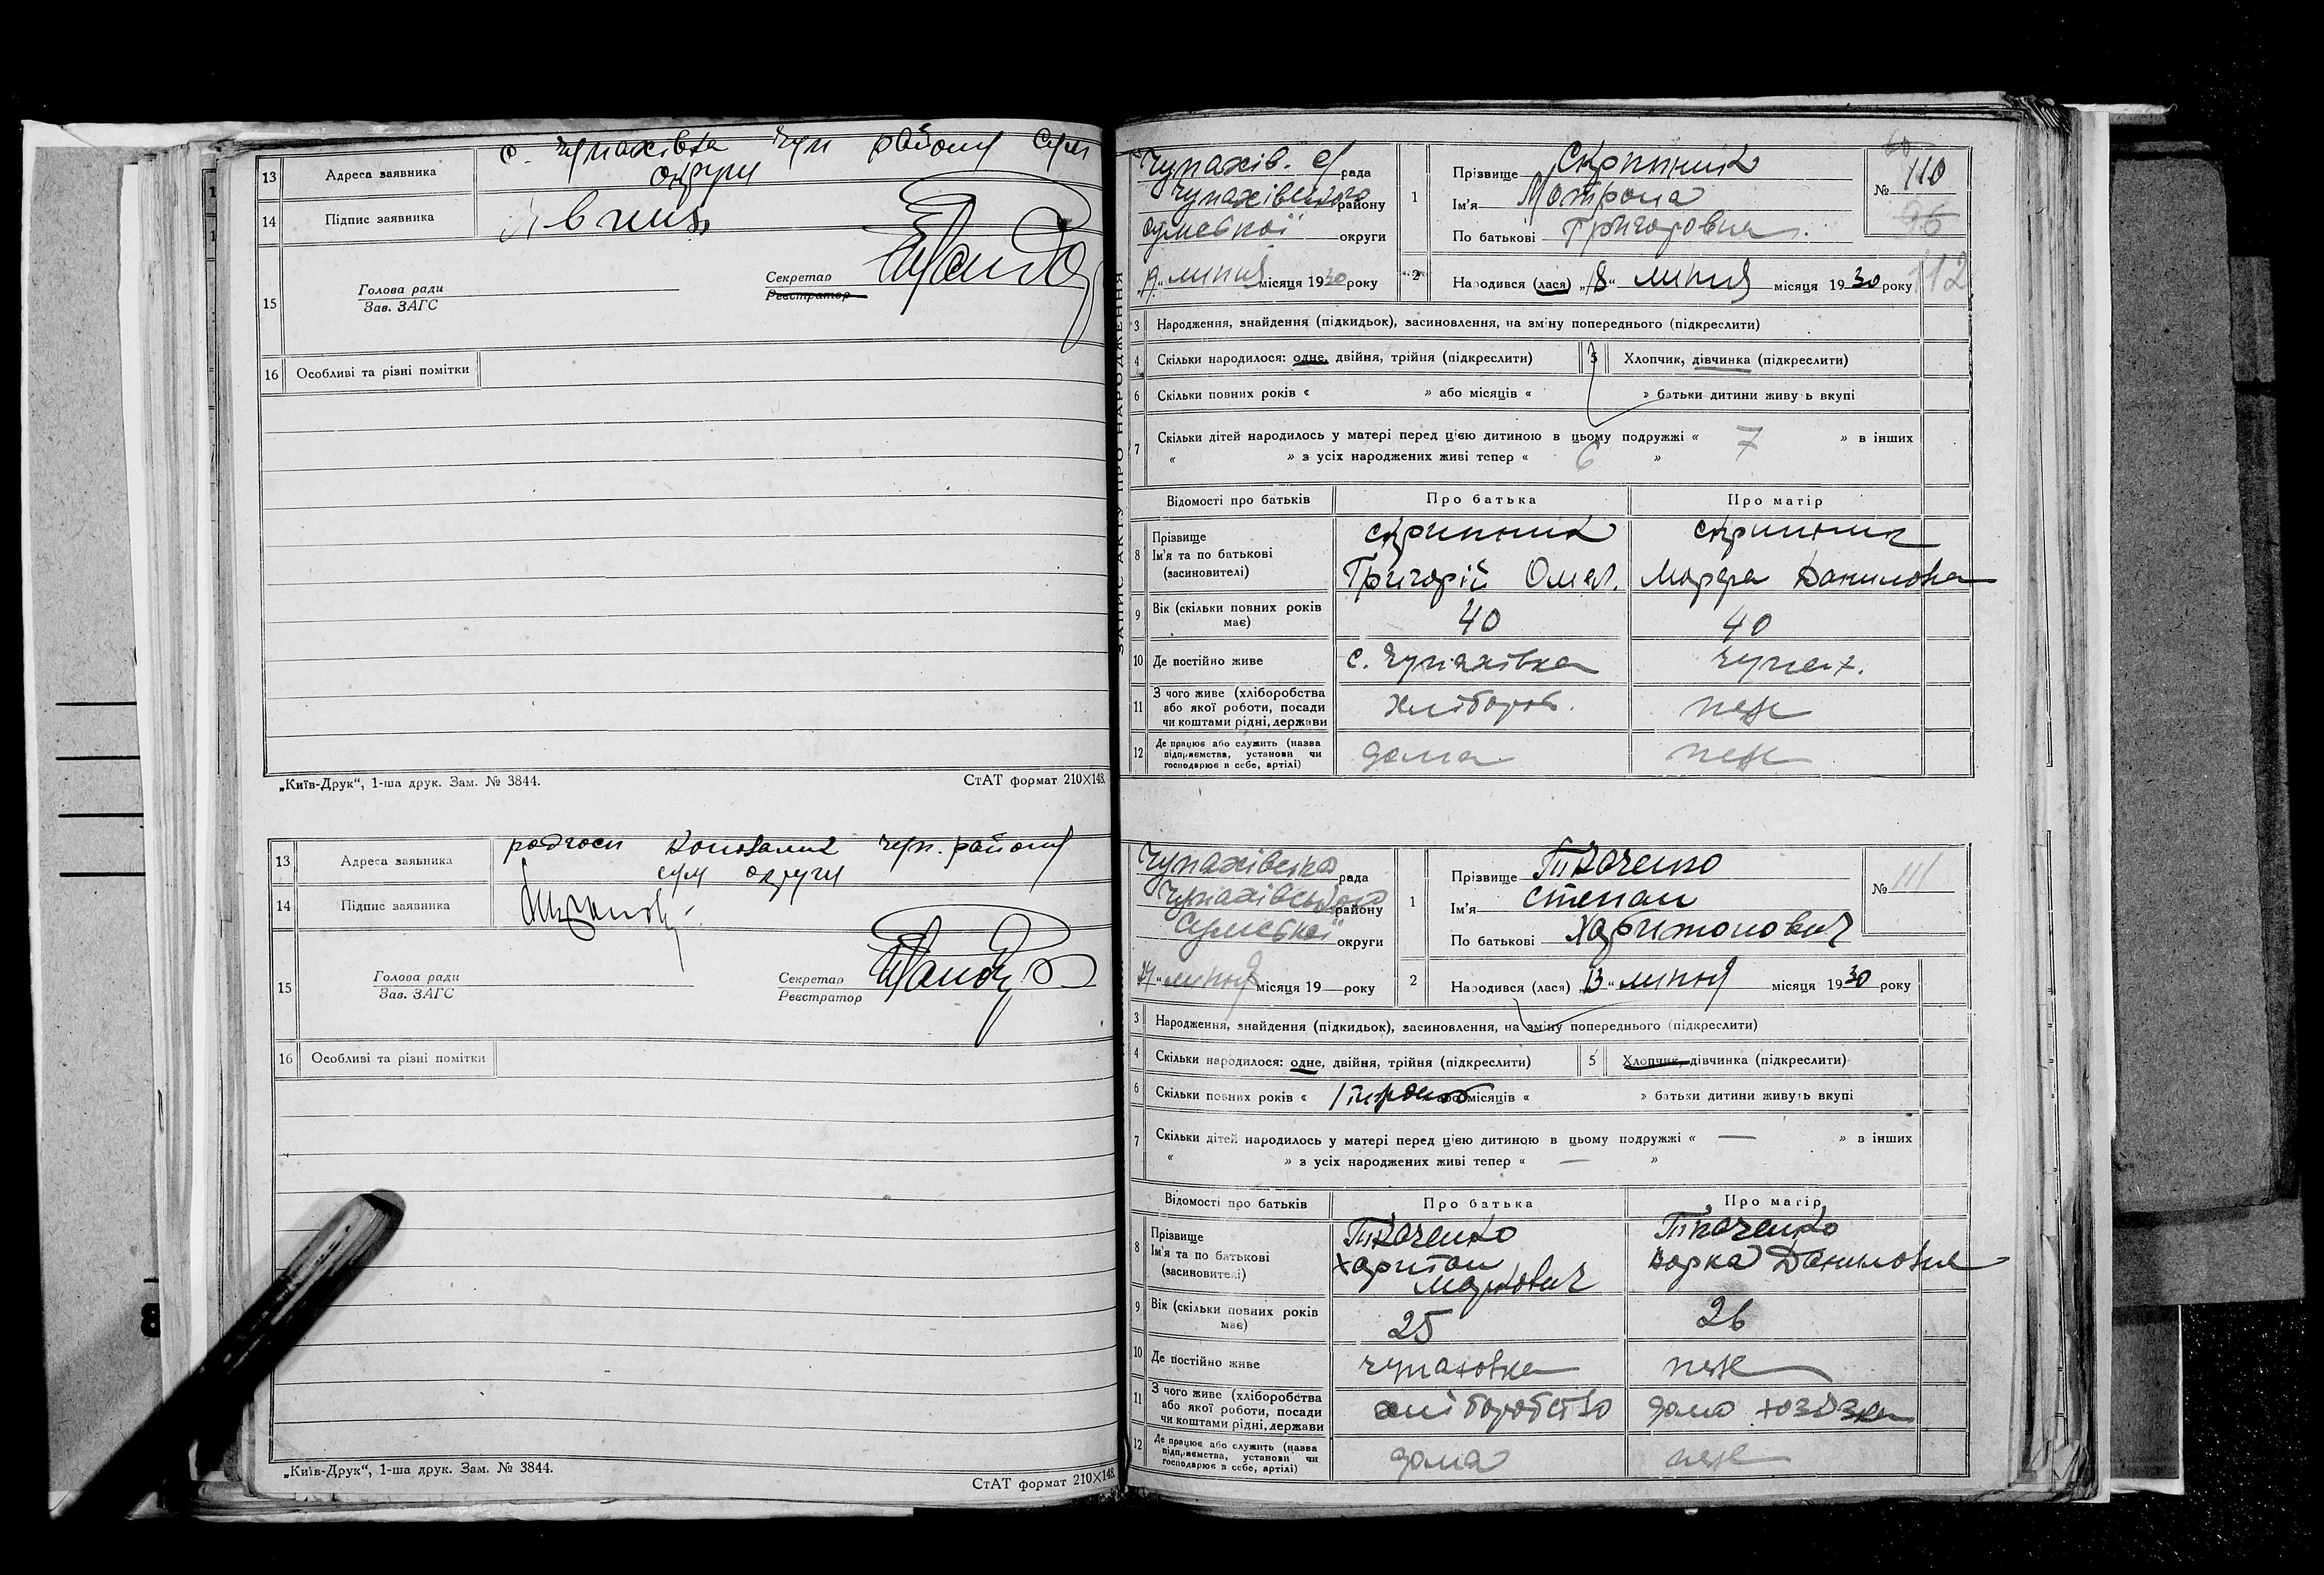 13 Адреса заявника с. Чупахівка Чуп району Сум
округи
14 Підпис заявника
15 Голова ради
Зав. ЗАГС
Секретар
Реєстратор
16 Особливі та різні помітки
„Київ-Друк“, 1-ша друк. Зам. № 3844.
СтАТ формат 210×148.
13 Адреса заявника радгосп Коновалик Чуп. району
сум округи
14 Підпис заявника
15 Голова ради
Зав. ЗАГС
Секретар
Реєстратор
16 Особливі та різні помітки
„Київ-Друк“, 1-ша друк. Зам. № 3844.
СтАТ формат 210×148.
ЗАПИС АКТУ ПРО НАРОДЖЕННЯ
Чупахів. с/ рада
Чупахівського району
Сумської округи
липня місяця 1930 року
1 Прізвище Скрипник
Ім'я Мотрона
По батькові Григоровна
№ 110
96
112
2 Народився (лася) „18“ липня місяця 1930 року
3 Народження, знайдення (підкидьок), засиновлення, на зміну попереднього (підкреслити)
4 Скільки народилося: одне, двійня, трійня (підкреслити) 5 Хлопчик, дівчинка (підкреслити)
6 Скільки повних років « » або місяців « » батьки дитини живуть вкупі
7 Скільки дітей народилось у матері перед цією дитиною в цьому подружжі « 7 » в інших
« » з усіх народжених живі тепер « 6 »
Відомості про батьків Про батька Про матір
8 Прізвище Ім'я та по батькові (засиновителі)
Скрипник Скрипник
Григорій Омел. Марфа Даниловна
9 Вік (скільки повних років має) 40 40
10 Де постійно живе с. Чупахівка Чупах.
11 З чого живе (хліборобства або якої роботи, посади чи коштами рідні, держави хлібороб. теж
12 Де працює або служить (назва підприємства, установи чи господарює в себе, артілі) дома теж
Чупахівська рада
Чупахівського району
Сумської округи
липня місяця 19 року
1 Прізвище Ткаченко
Ім'я Степан
По батькові Харитонович
№ 111
2 Народився (лася) „13“ липня місяця 1930 року
3 Народження, знайдення (підкидьок), засиновлення, на зміну попереднього (підкреслити)
4 Скільки народилося: одне, двійня, трійня (підкреслити) 5 Хлопчик, дівчинка (підкреслити)
6 Скільки повних років « або місяців « » батьки дитини живуть вкупі
7 Скільки дітей народилось у матері перед цією дитиною в цьому подружжі « — » в інших
« » з усіх народжених живі тепер « — »
Відомості про батьків Про батька Про матір
8 Прізвище Ім'я та по батькові (засиновителі)
Ткаченко Ткаченко
Харитон Варка Даниловна
Маркович
9 Вік (скільки повних років має) 25 26
10 Де постійно живе Чупаховка теж
11 З чого живе (хліборобства або якої роботи, посади чи коштами рідні, держави хліборобство дома хозяйка
12 Де працює або служить (назва підприємства, установи чи господарює в себе, артілі) дома теж